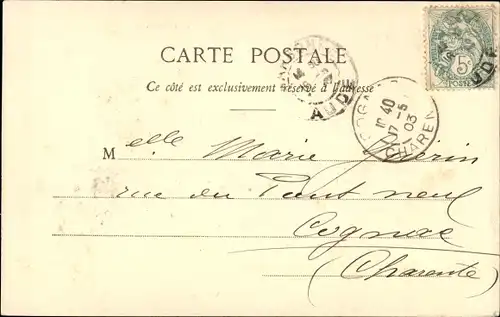 CARTE POSTALE
Ce côté est exclusivement réservé à l'adresse
AUDE
COGNAC
10 40
17 -5
03
CHAREN
5c
POSTES
Melle Marie Guérin
rue du Pont neuf
Cognac
(Charente)